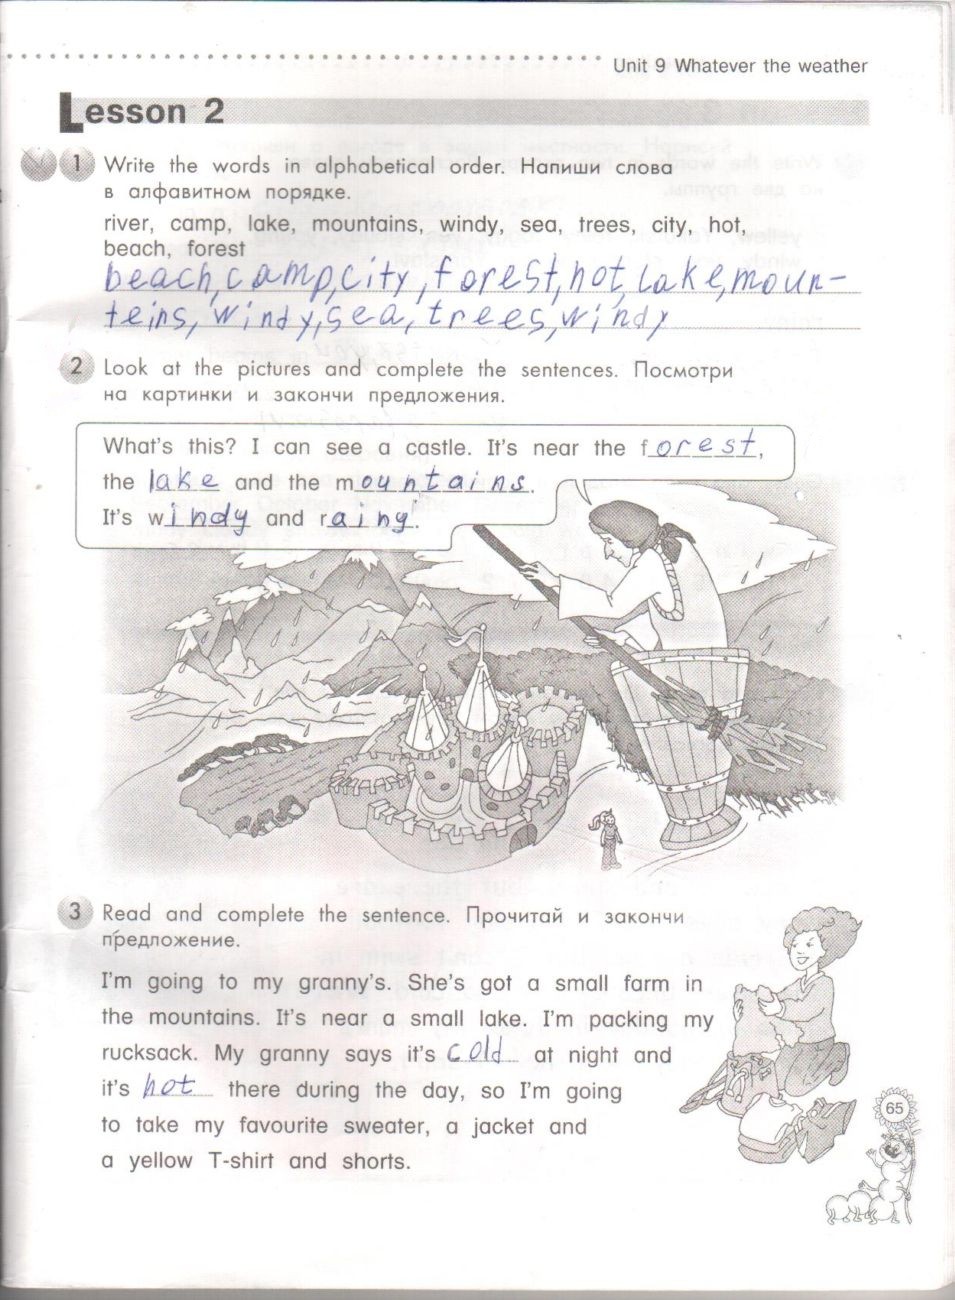 Unit 9 Whatever the weather
Lesson 2
1 Write the words in alphabetical order. Напиши слова
в алфавитном порядке.
river, camp, lake, mountains, windy, sea, trees, city, hot,
beach, forest
beach, camp, city, forest, hot, lake, moun-
teins, windy, sea, trees, windy
2 Look at the pictures and complete the sentences. Посмотри
на картинки и закончи предложения.
What's this? I can see a castle. It's near the forest,
the lake and the mountains.
It's windy and raing.
3 Read and complete the sentence. Прочитай и закончи
предложение.
I'm going to my granny's. She's got a small farm in
the mountains. It's near a small lake. I'm packing my
rucksack. My granny says it's cold at night and
it's hot there during the day, so I'm going
to take my favourite sweater, a jacket and
a yellow T-shirt and shorts.
65